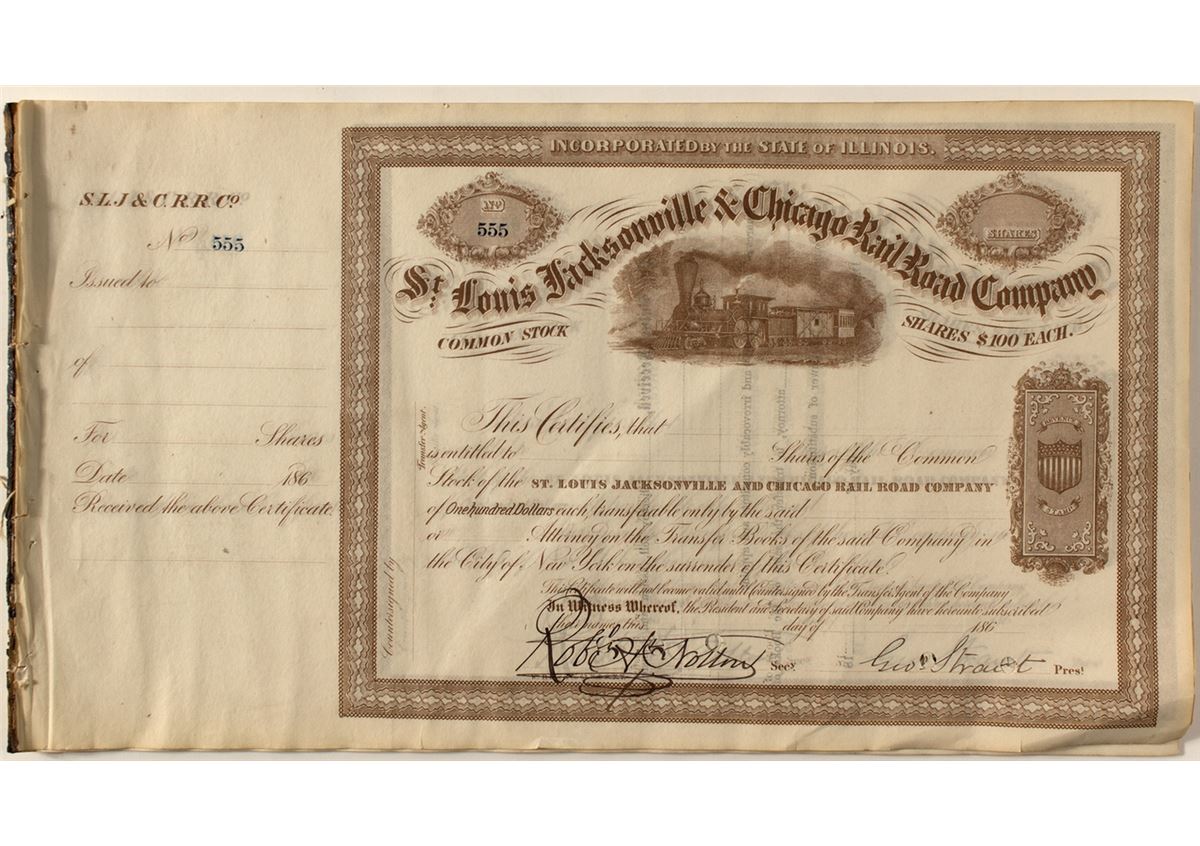 S.L.J & C.R.R. Co.
No 555
Issued to
of
For Shares
Date 186
Received the above Certificate
INCORPORATED BY THE STATE OF ILLINOIS.
No
555
SHARES
St. Louis Jacksonville & Chicago Rail Road Company
COMMON STOCK
SHARES $100 EACH.
This Certifies, that
is entitled to Shares of the Common
Stock of the ST. LOUIS JACKSONVILLE AND CHICAGO RAIL ROAD COMPANY
of One hundred Dollars each, transferable only by the said
or Attorney on the Transfer Books of the said Company in
the City of New York on the surrender of this Certificate.
This Certificate will not become valid until Countersigned by the Transfer Agent of the Company
In Witness Whereof, the President and Secretary of said Company have hereunto subscribed
their names this day of 186
Secy
Geo. Straut Prest
Countersigned by Transfer Agent.
STAMP